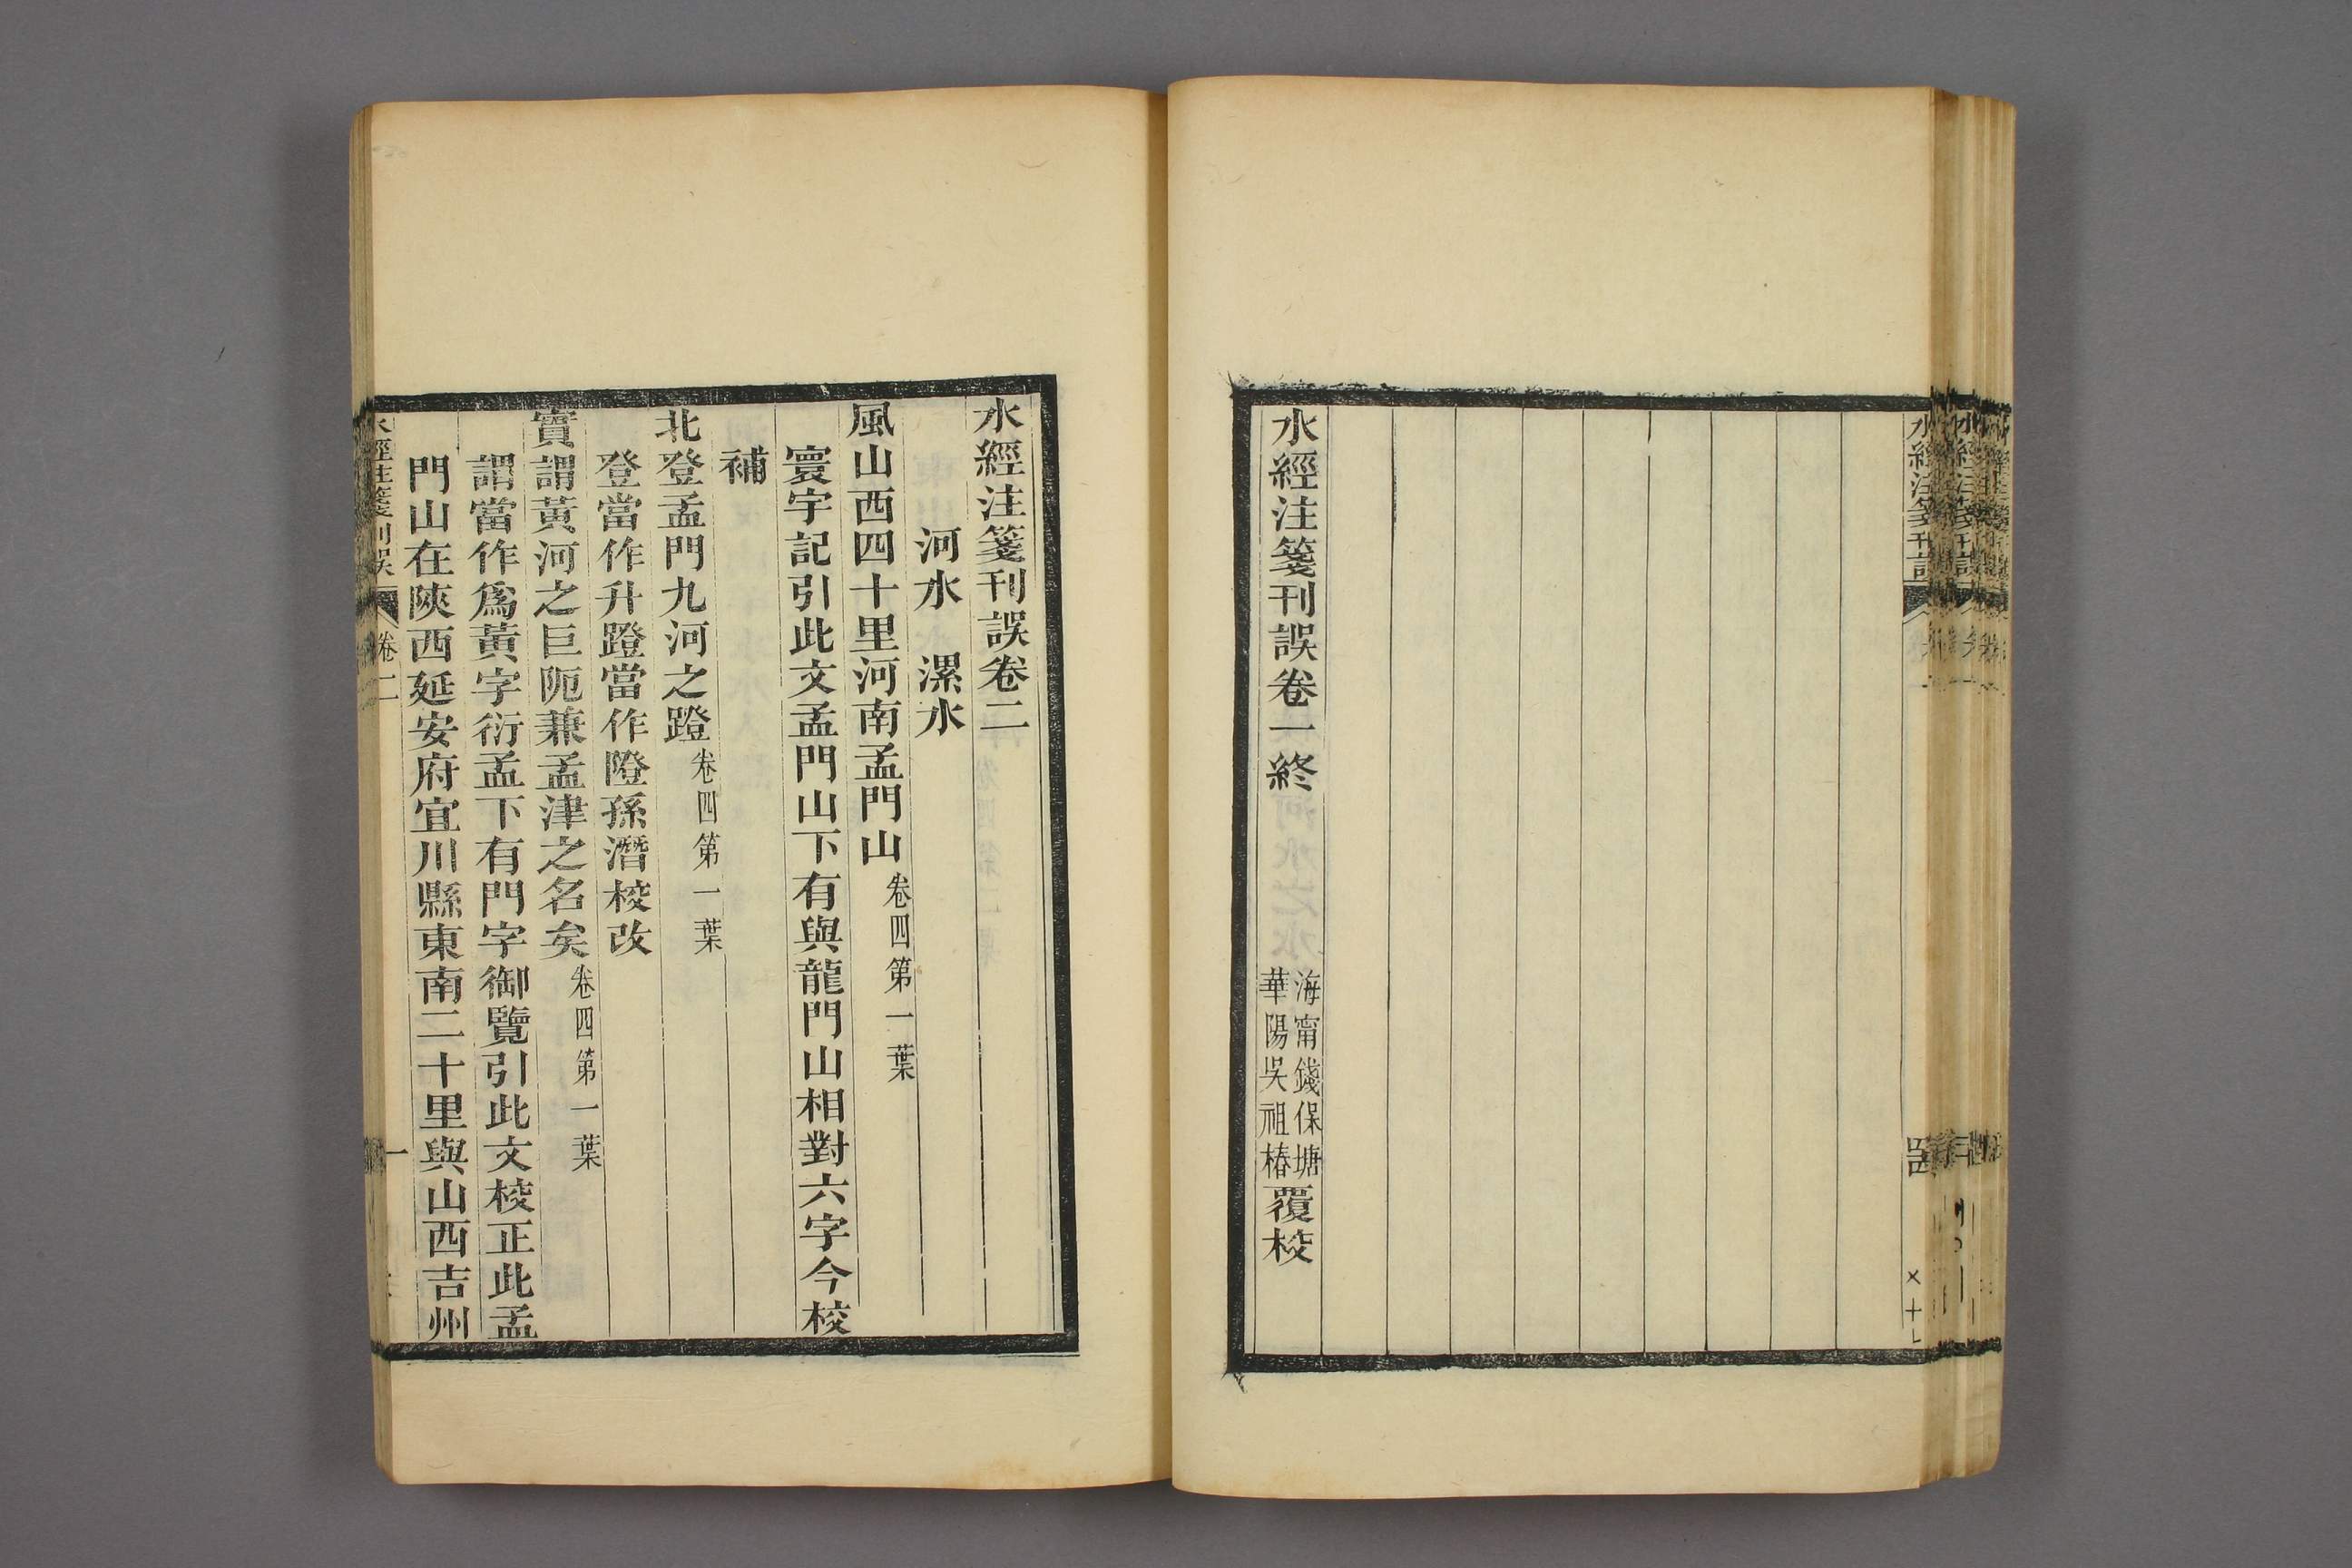 水經注箋刊誤卷一終　海甯錢保塘華陽吳祖椿覆校
水經注箋刊誤卷二
河水　漯水
風山西四十里河南孟門山卷四第一葉
寰宇記引此文孟門山下有與龍門山相對六字今校
補
北登孟門九河之蹬卷四第一葉
登當作升蹬當作隥孫潛校改
實謂黃河之巨阨兼孟津之名矣卷四第一葉
謂當作爲黃字衍孟下有門字御覽引此文校正此孟
門山在陝西延安府宜川縣東南二十里與山西吉州
水經注箋刊誤　卷二　一